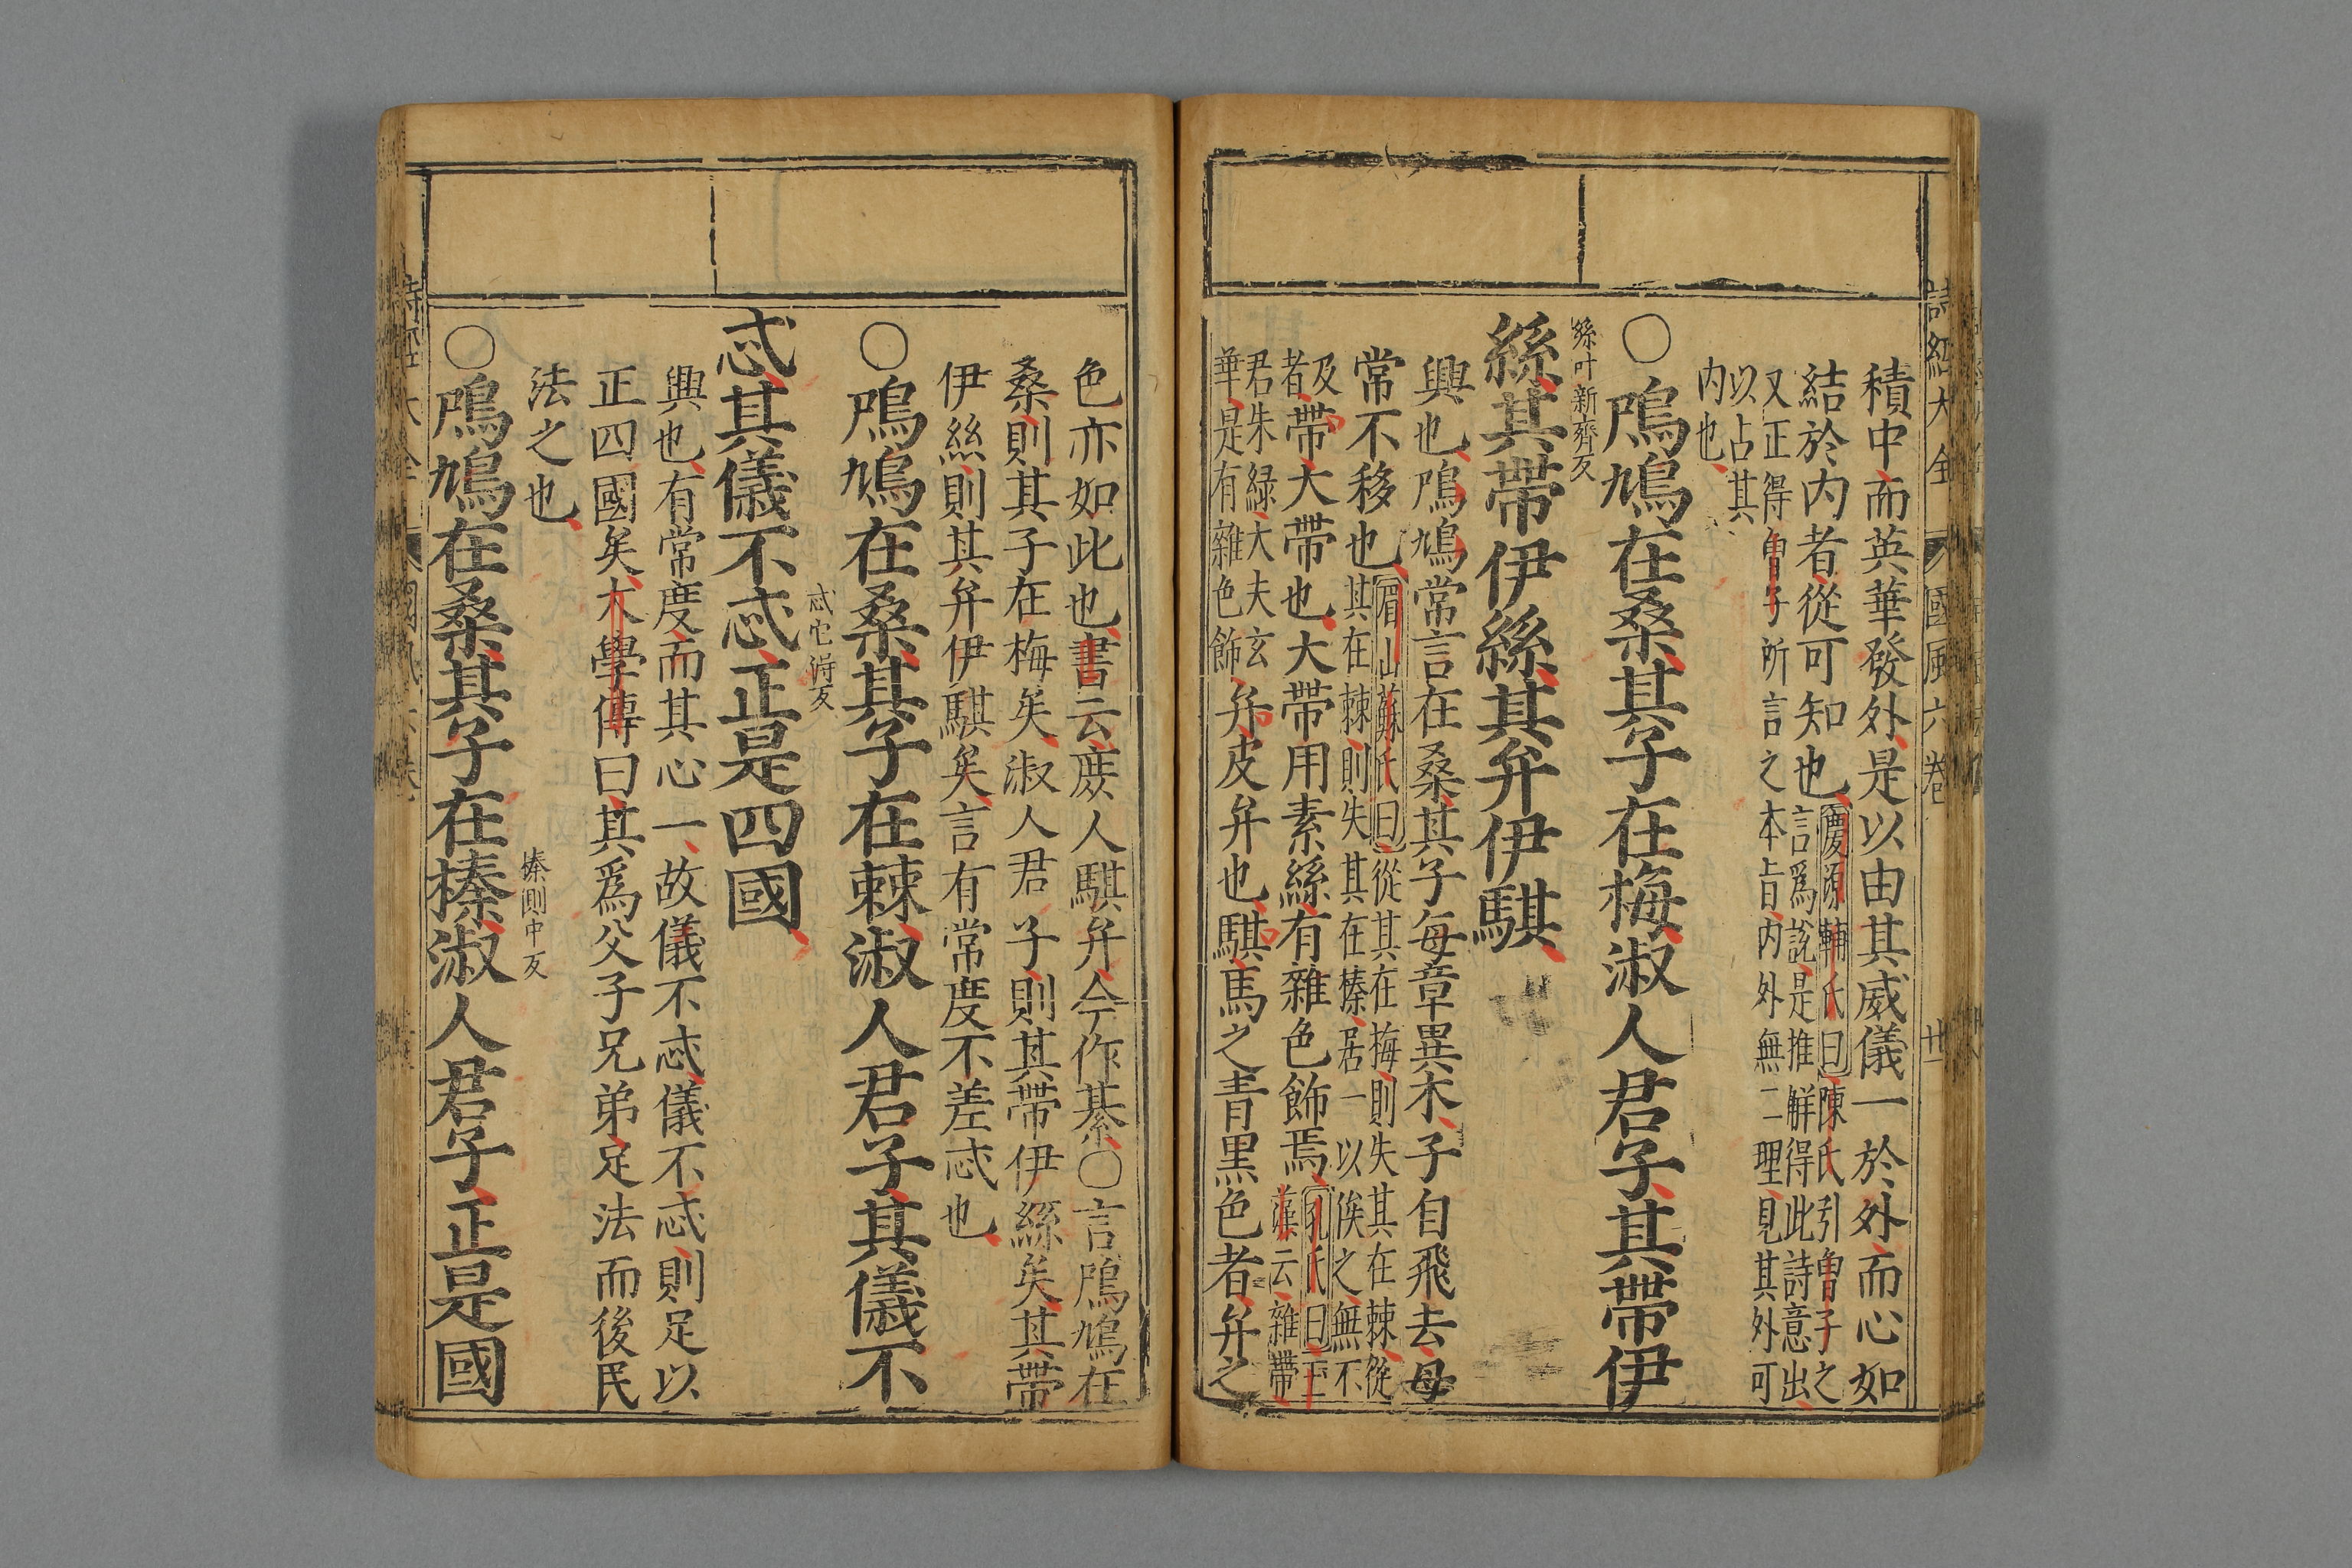 詩經大全 國風六卷 卅
積中而英華發外是以由其威儀一於外而心如
結於内者從可知也
慶源輔氏曰陳氏引曽子之
言爲說是推觧得此詩意出
又正得曽子所言之本旨内外無二理見其外可
以占其
内也
○鳲鳩在桑其子在梅淑人君子其帶伊
絲叶新齎反
絲其帶伊絲其弁伊騏
興也鳲鳩常言在桑其子每章異木子自飛去母
常不移也
眉山蘇氏曰從其在梅則失其在棘從
其在棘則失其在榛居一以俟之無不
及
者
帶大帶也大帶用素絲有雜色飾焉
孔氏曰玉
藻云雜帶
君朱綠大夫玄
華是有雜色飾
弁皮弁也騏馬之青黑色者弁之
色亦如此也書云廄人騏弁今作綦○言鳲鳩在
桑則其子在梅矣淑人君子則其帶伊絲矣其帶
伊絲則其弁伊騏矣言有常度不差忒也
○鳲鳩在桑其子在棘淑人君子其儀不
忒它得反
忒其儀不忒正是四國
興也有常度而其心一故儀不忒儀不忒則足以
正四國矣大學傳曰其爲父子兄弟足法而後民
法之也
榛側巾反
○鳲鳩在桑其子在榛淑人君子正是國